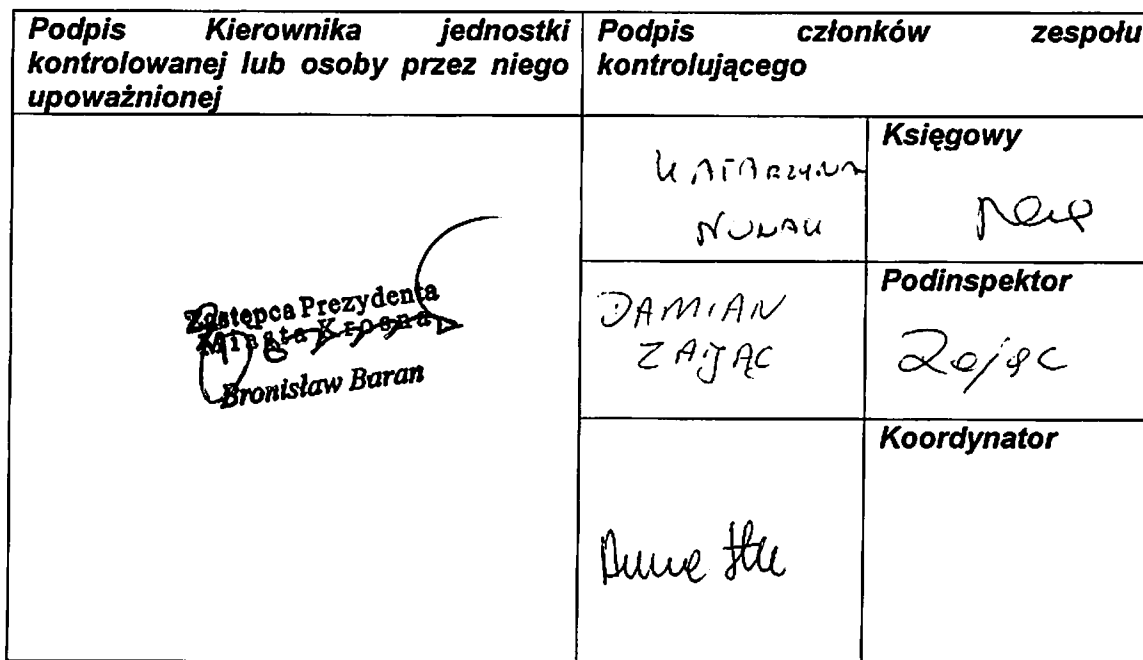 Podpis Kierownika jednostki
kontrolowanej lub osoby przez niego
upoważnionej
Podpis członków zespołu
kontrolującego
Zastępca Prezydenta
Miasta Krosna
Bronisław Baran
KATARZYNA
Księgowy
DAMIAN
ZAJĄC
Podinspektor
Zając
Koordynator